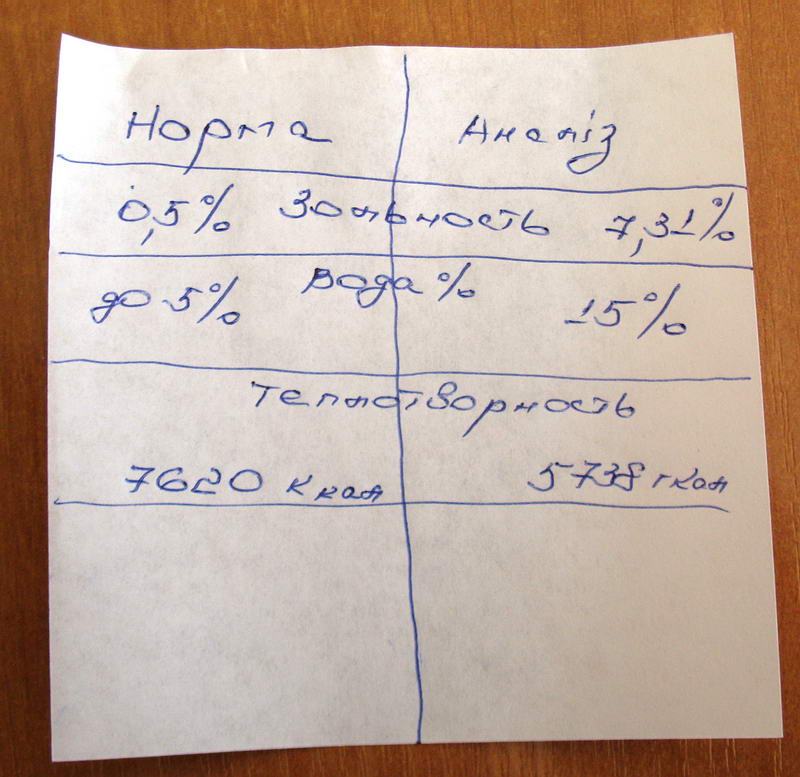 Норма Аналіз
0,5% Зольность 7,31%
до 5% Вода % 15%
Теплотворность
7620 ккал 5738 гкал